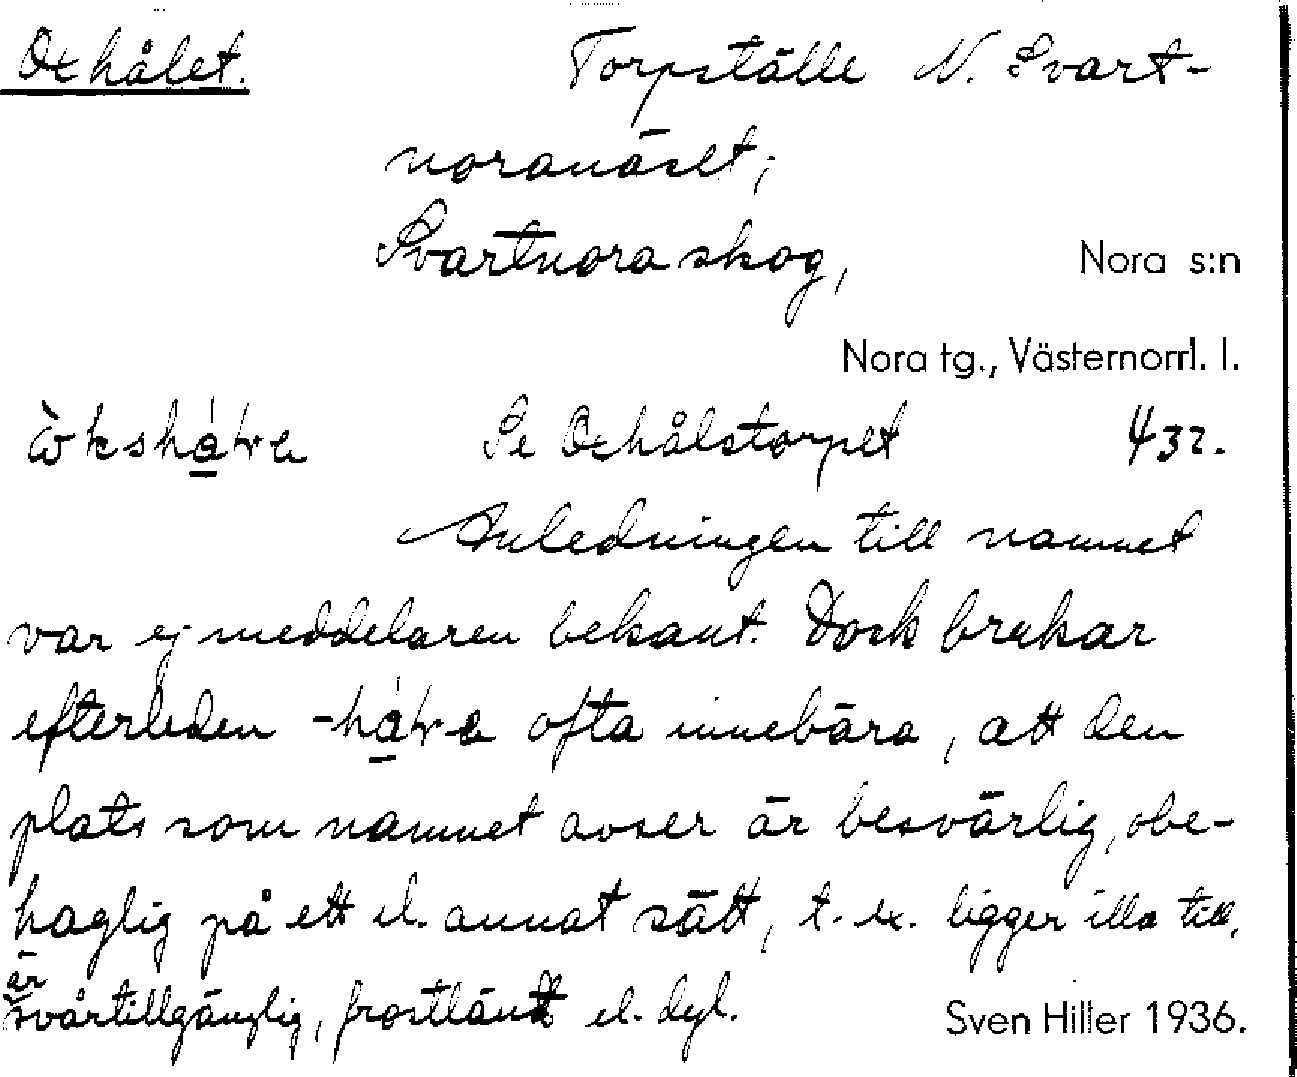 Oxhålet. Torpställe N. Svart-
noranäset;
Svartnora skog, Nora s:n
Nora tg., Västernorrl. l.
Se Oxhålstorpet 432.
Anledningen till namnet
var ej meddelaren bekant. Dock brukar
efterleden ofta innebära, att den
plats som namnet avser är besvärlig, obe-
haglig på ett el. annat sätt, t. ex. ligger illa till,
är
svårtillgänglig, frostlänt el. dyl. Sven Hiller 1936.